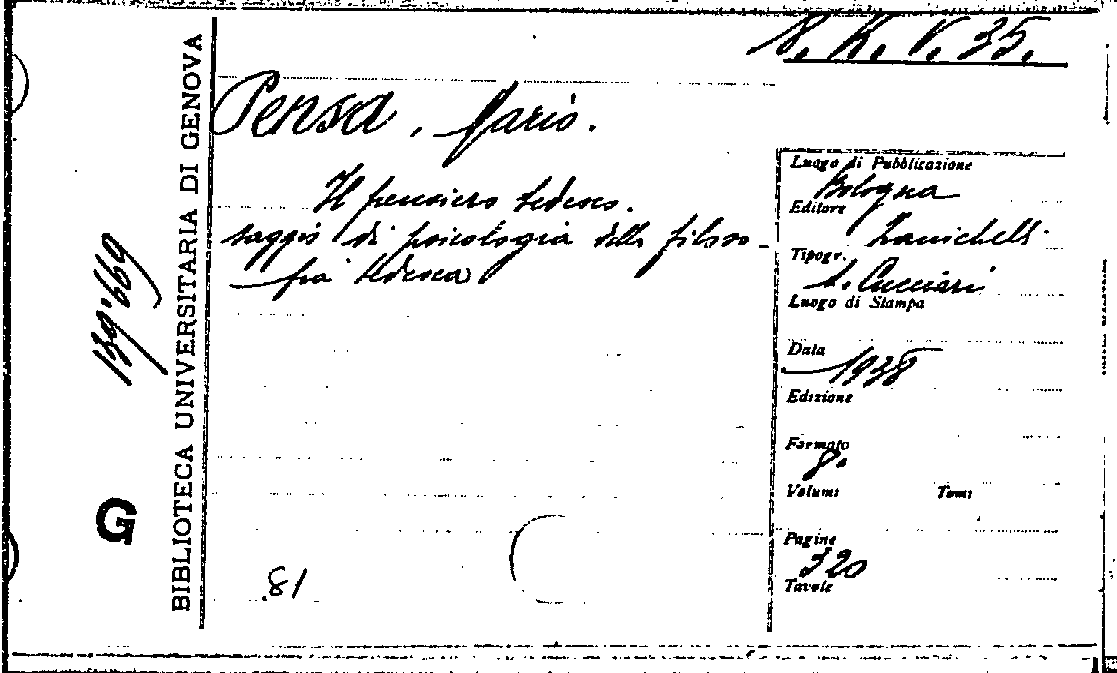 8. K. V. 35.
Pensa, Mario.
Il pensiero tedesco.
saggio di psicologia della filoso-
fia tedesca
81
BIBLIOTECA UNIVERSITARIA DI GENOVA
139.669
G
Luogo di Pubblicazione
Bologna
Editore
Zanichelli
Tipogr.
L. Cucciari
Luogo di Stampa
Data
1938
Edizione
Formato
8°
Volumi Tomi
Pagine
320
Tavole